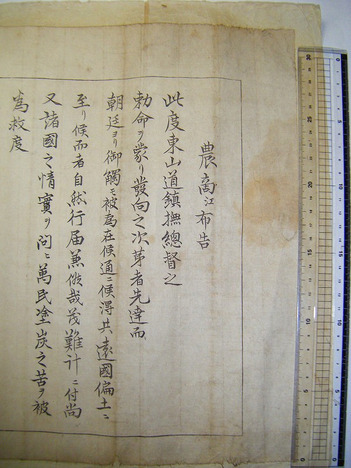 農商江布告
此度東山道鎮撫總督之
勅命ヲ蒙リ發向之次第者先達而
朝廷ヨリ御觸ニ被為在候通ニ候得共遠國偏土ニ
至リ候而者自然行届兼候哉茂難計ニ付尚
又諸國之情實ヲ問ニ萬民塗炭之苦ヲ被
為救度